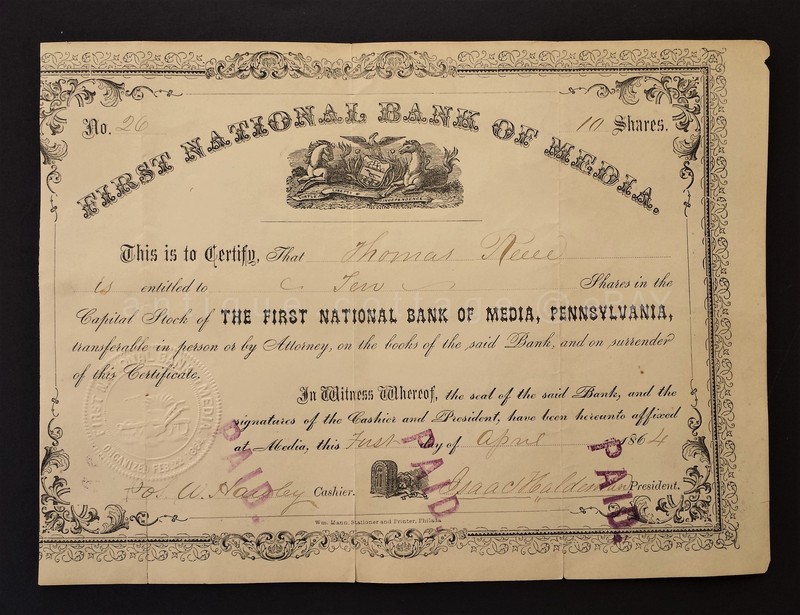 No. 26
10 Shares.
FIRST NATIONAL BANK OF MEDIA.
INDEPENDENCE
This is to Certify, That Thomas Reece
is entitled to Ten Shares in the
Capital Stock of THE FIRST NATIONAL BANK OF MEDIA, PENNSYLVANIA,
transferable in person or by Attorney, on the books of the said Bank, and on surrender
of this Certificate.
In Witness Whereof, the seal of the said Bank, and the
signatures of the Cashier and President, have been hereunto affixed
at Media, this First day of April 1864
Jos. W. Hawley Cashier. Isaac Haldeman President.
PAID.
PAID
PAID.
Wm. Mann, Stationer and Printer, Philada.
FIRST NATIONAL BANK MEDIA
ORGANIZED FEB.
antique cottage